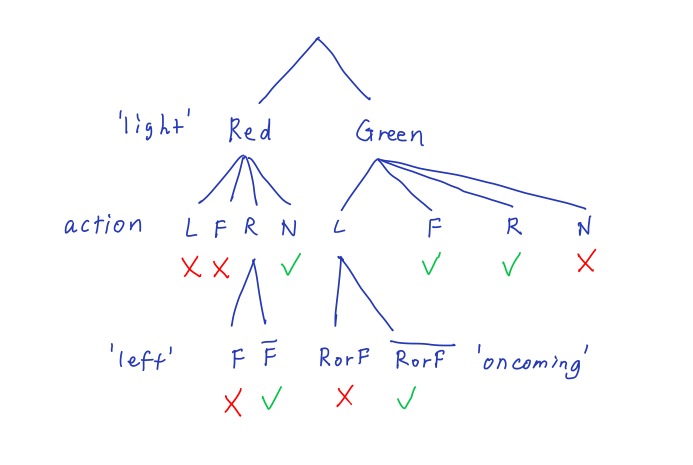 'light' Red Green
action L F R N L F R N
'left' F F̅ RorF R̅o̅r̅F̅ 'oncoming'